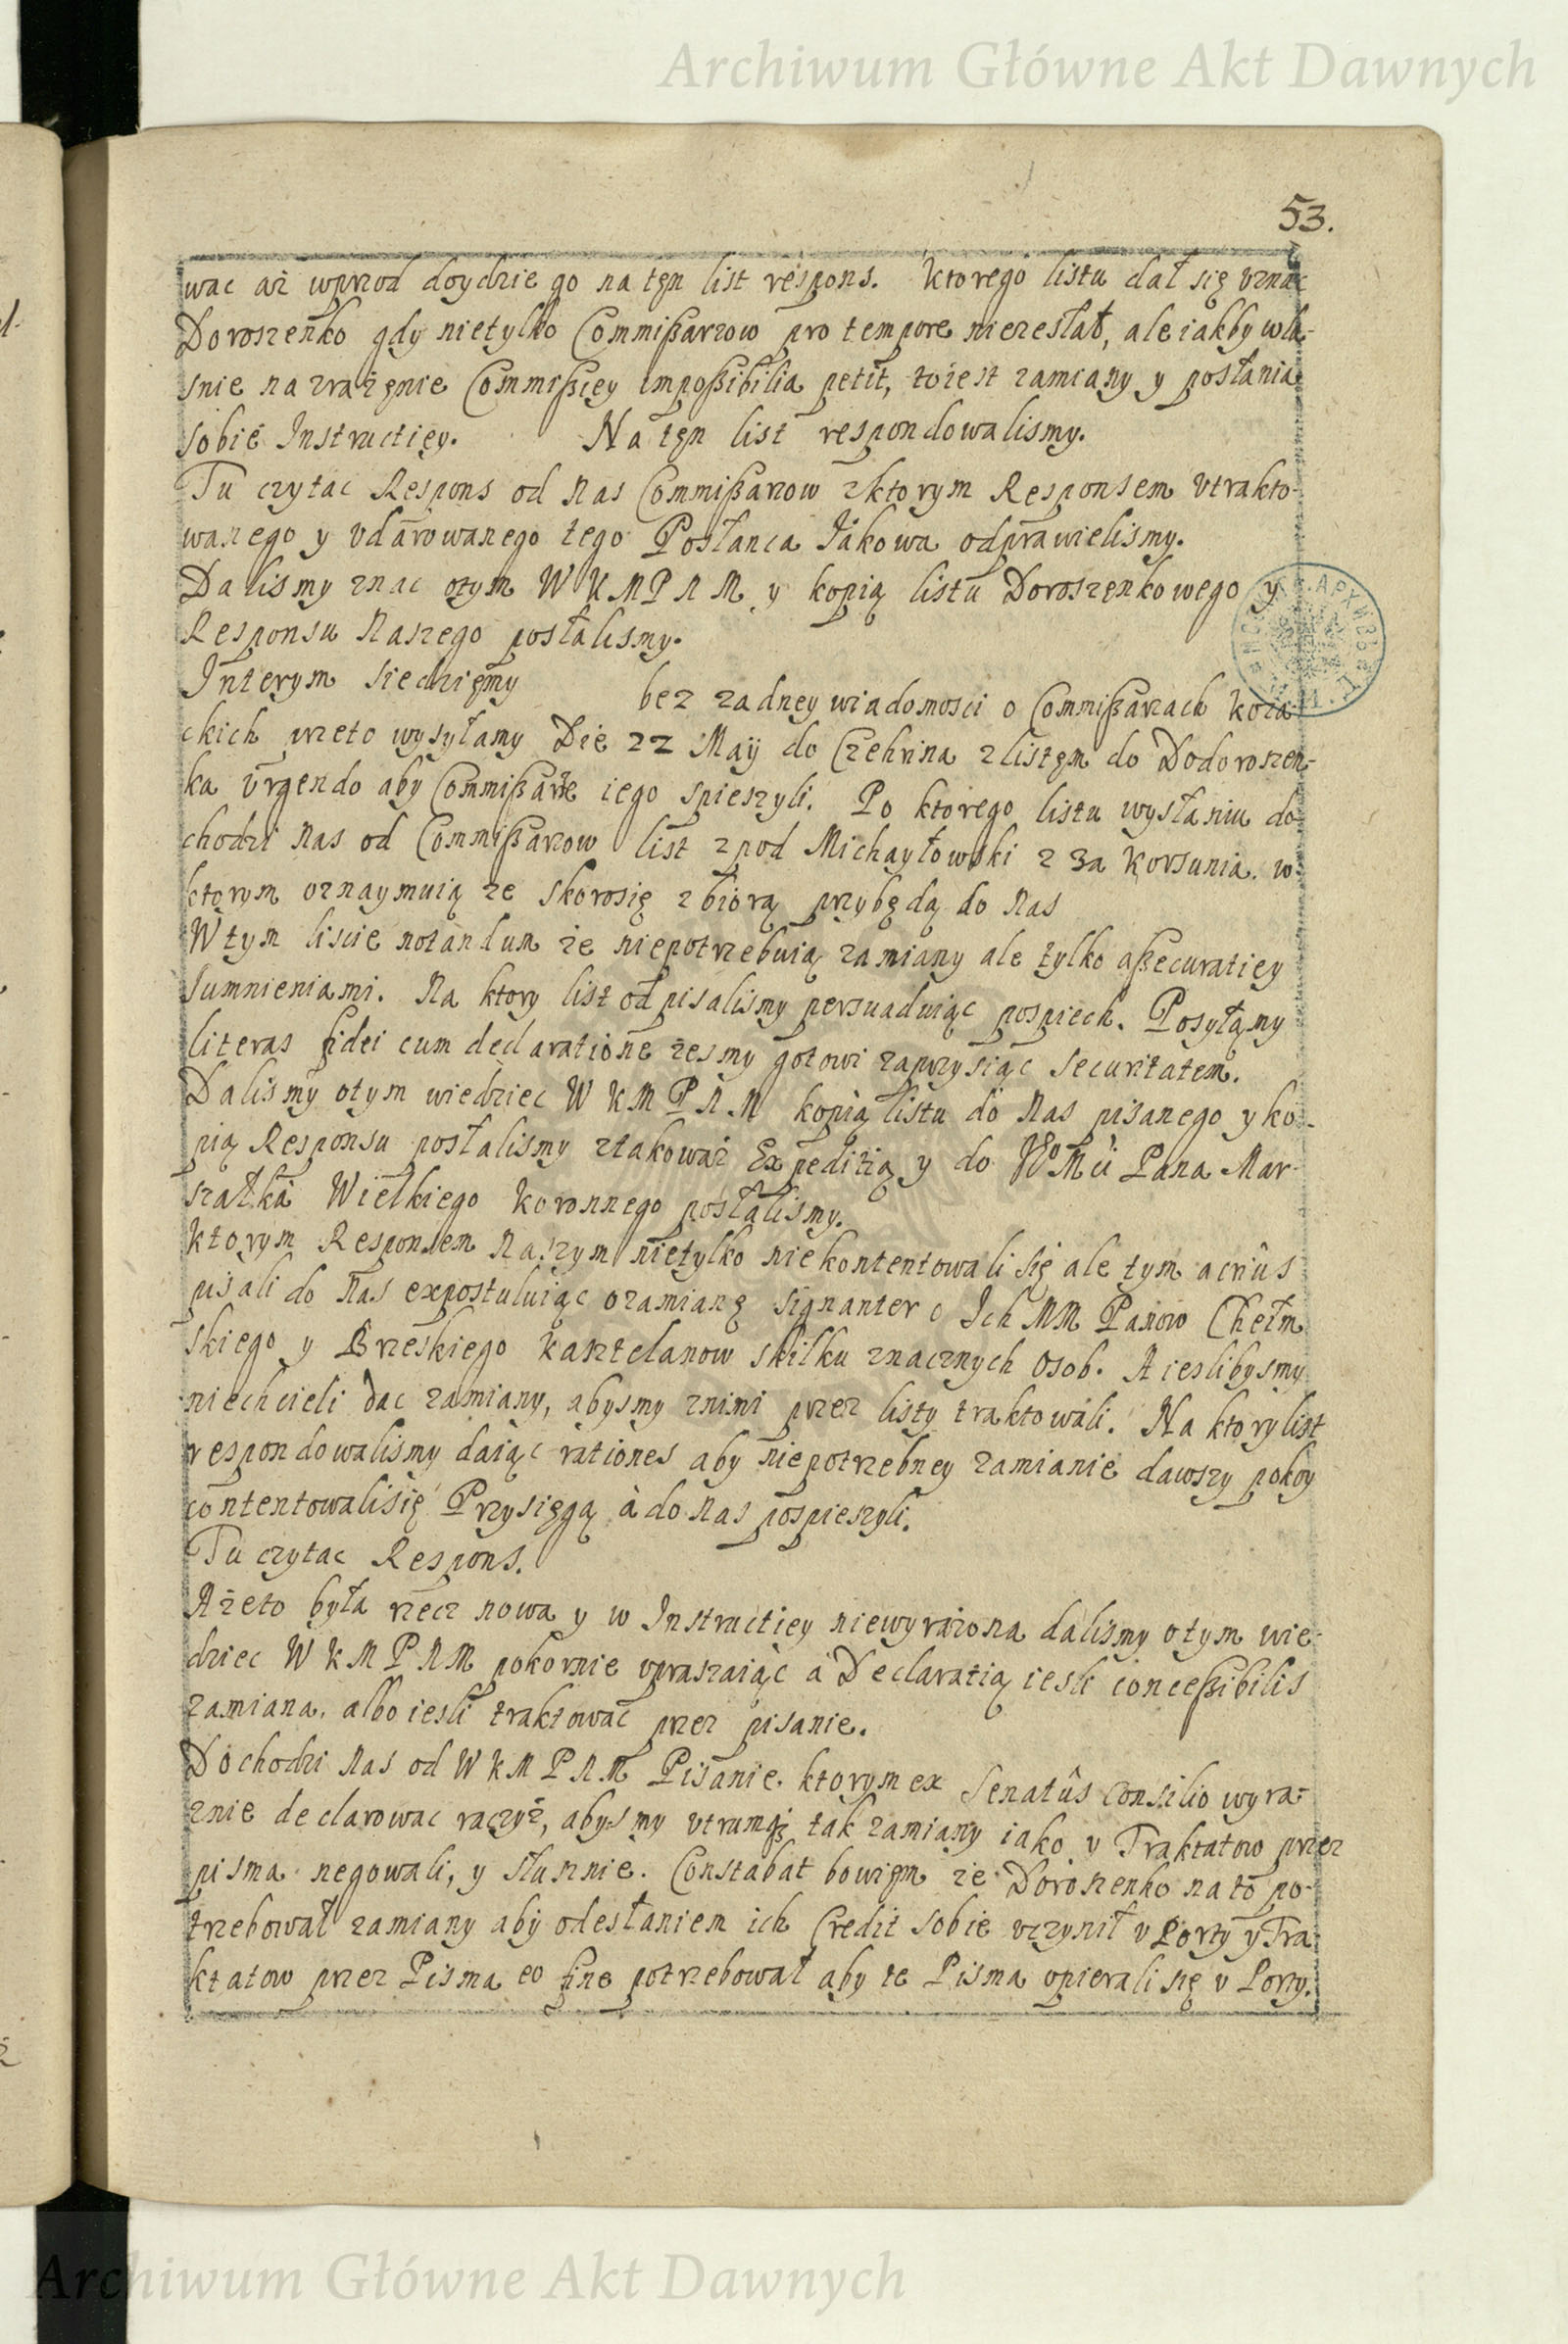 Archiwum Główne Akt Dawnych
53.
wac aż wprzod doydzie go na tęn list respons. Ktorego listu dał się vznac
Doroszenko gdy nietylko Commißarzow pro tempore niezesłał, ale iakby wła-
snie na zrażęnie Commißiey impoßibilia petit, toiest zamiany y posłania
sobie Instructiey. Na tęn list respondowalismy.
Tu czytac Respons od Nas Commißarzow zktorym Responsem vtrakto-
wanego y vdarowanego tego Posłanca Jakowa odprawielismy.
Dalismy znac otym W K M P N M y kopią listu Doroszęnkowego y
Responsu Naszego posłalismy.
Interym siedzięmy bez zadney wiadomosci o Commißarzach Koza
ckich przeto wysyłamy Die 22 Maij do Czehrina zlistęm do Dodoroszen-
ka vrgendo aby Commißarze iego spieszyli. Po ktorego listu wysłaniu do-
chodzi Nas od Commißarzow list zpod Michayłowski z za Korsunia. w
ktorym oznaymuią ze skorosię zbiorą przybędą do Nas
Wtym liscie notandum że niepotrzebuią zamiany ale tylko aßecuratiey
sumnieniami. Na ktory list odpisalismy persuaduiąc pospiech. Posyłamy
literas fidei cum declaratione żesmy gotowi zaprzysiąc securitatem.
Dalismy otym wiedziec W K M P N M kopią listu do Nas pisanego y ko-
pią Responsu posłalismy ztakoważ Expeditią y do Pana Mar-
szałka Wielkiego Koronnego posłalismy.
Ktorym Responsem Naszym nietylko niekontentowali się ale tym acriûs
pisali do Nas expostuluiąc ozamianę signanter o Ich MM Panow Chełm
skiego y Brzeskiego Kasztelanow skilku znacznych Osob. A ieslibysmy
niechcieli dac zamiany, abysmy znimi przez listy traktowali. Na ktory list
respondowalismy daiąc rationes aby niepotrzebney zamianie dawszy pokoy
contentowalisię Przysięgą à do Nas pospieszyli.
Tu czytac Respons.
Ażeto była rzecz nowa y w Instructiey niewyrażona dalismy otym wie-
dziec W K M P N M pokornie vpraszaiąc à Declaratią iesli conceßibilis
zamiana, albo iesli traktowac przez pisanie.
Dochodzi Nas od W K M P N M Pisanie, ktorym ex Senatûs Consilio wyra-
znie declarowac raczył, abysmy vtrumq; tak zamiany iako y Traktatow przez
pisma negowali, y słusznie. Constabat bowięm że Doroszenko na to po-
trzebował zamiany aby odesłaniem ich Credit sobie vczynił v Porty y Tra-
ktatow przez Pisma eo fine potrzebował aby te Pisma opierali się v Porty.
Archiwum Główne Akt Dawnych